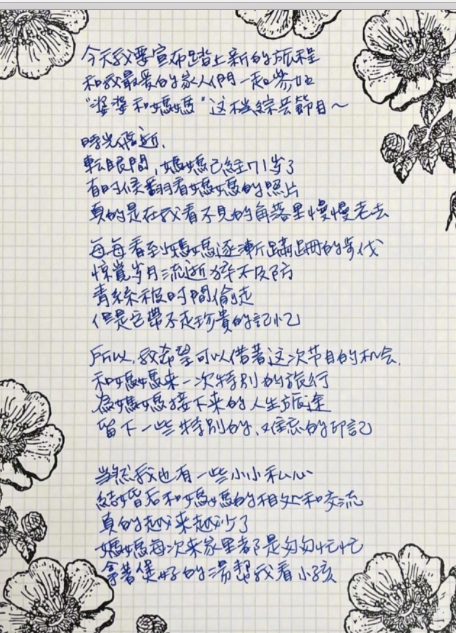 今天我要宣布踏上新的旅程
和我最爱的家人們一起參加
"婆婆和媽媽"这档綜芸節目~
時光飛逝,
転眼間,媽媽已経71岁了
有时候翻看媽媽的照片
真的是在我看不見的角落里慢慢老去
每每看至媽媽逐漸蹒跚的步伐
惊覚岁月流逝猝不及防
青絲被时間偷走
但是它帶不走珍貴的記忆
所以,我希望可以借著这次节目的机会,
和媽媽来一次特别的旅行
為媽媽接下来的人生旅途
留下一些特别的、难忘的印記
当然我也有一些小小私心
結婚后和媽媽的相处和交流
真的越来越少了
媽媽每次来家里都是匆匆忙忙
拿著煲好的湯幫我看小孩